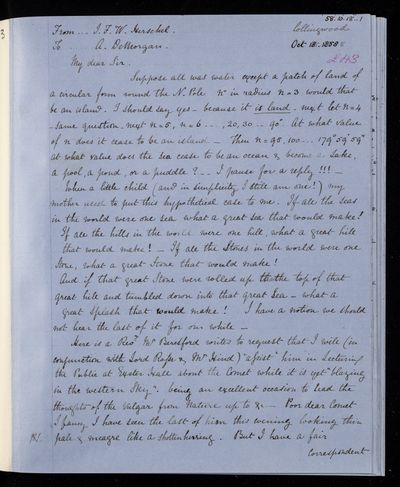 58.10.18.-1
From... J. F. W. Herschel. Collingwood
To A. DeMorgan. Oct 18. 1858
243
My dear Sir.
Suppose all was water except a patch of land of
a circular form round the N. Pole n° in radius n = 3 would that
be an island. I should say yes - because it is land. next let n = 4
- same question. next n = 5, n = 6 ..., 20, 30 ... 90° At what value
of n does it cease to be an island - Then n = 95, 100 ... 179° 59' 59"
at what value does the sea cease to be an ocean & become a Lake,
a pool, a pond, or a puddle? -- I pause for a reply!!! -
When a little child (and in simplicity I still am one!) my
mother used to put this hypothetical case to me. If all the seas
in the world were one sea what a great sea that would make!
If all the hills in the world were one hill, what a great hill
that would make! - If all the Stones in the world were one
Stone, what a great Stone that would make!
And if that great Stone were rolled up to the top of that
great hill and tumbled down into that great Sea - what a
great Splash that would make! I have a notion we should
not hear the last of it for one while -
Here is a Revd Mr Beresford writes to request that I will (in
conjunction with Lord Rosse & Mr Hind) "assist" him in Lecturing
the Public at Exeter Hall about the Comet while it is yet "blazing
in the western Sky". being an excellent occasion to lead the
thoughts of the vulgar from Nature up to &c - Poor dear Comet
I fancy I have seen the last of him this evening looking thin
pale & meagre like a shotten herring. But I have a fair
Correspondent